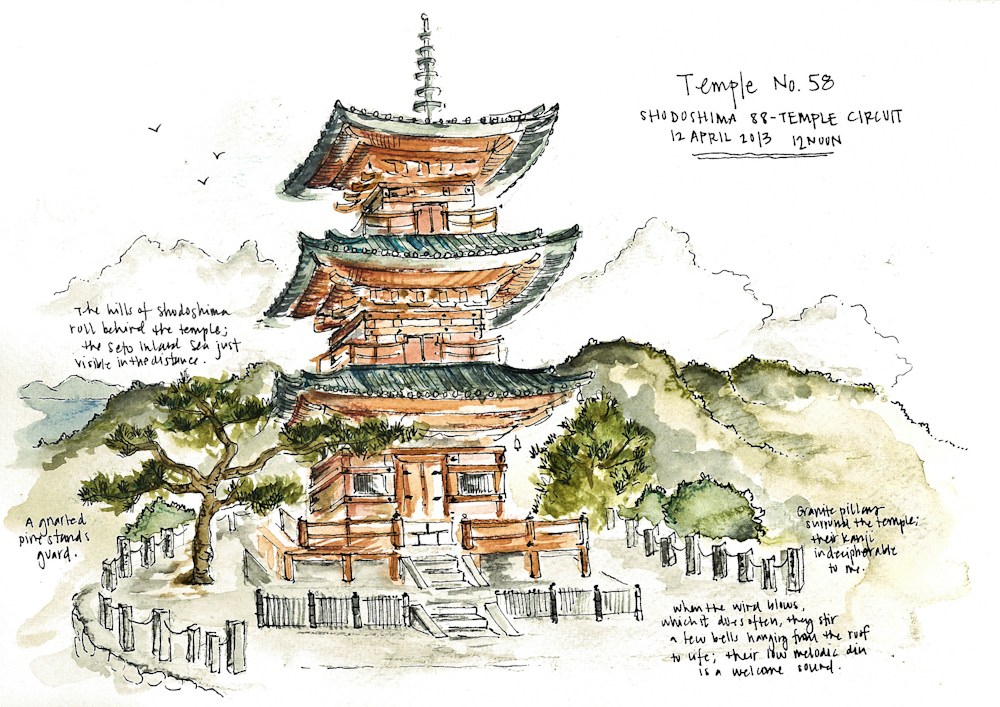 Temple No. 58
SHODOSHIMA 88-TEMPLE CIRCUIT
12 APRIL 2013 12 NOON
The hills of Shodoshima
roll behind the temple;
the Seto Inland Sea just
visible in the distance.
A gnarled
pine stands
guard.
Granite pillars
surround the temple;
their kanji
indecipherable
to me.
When the wind blows,
which it does often, they stir
a few bells hanging from the roof
to life; their low melodic din
is a welcome sound.